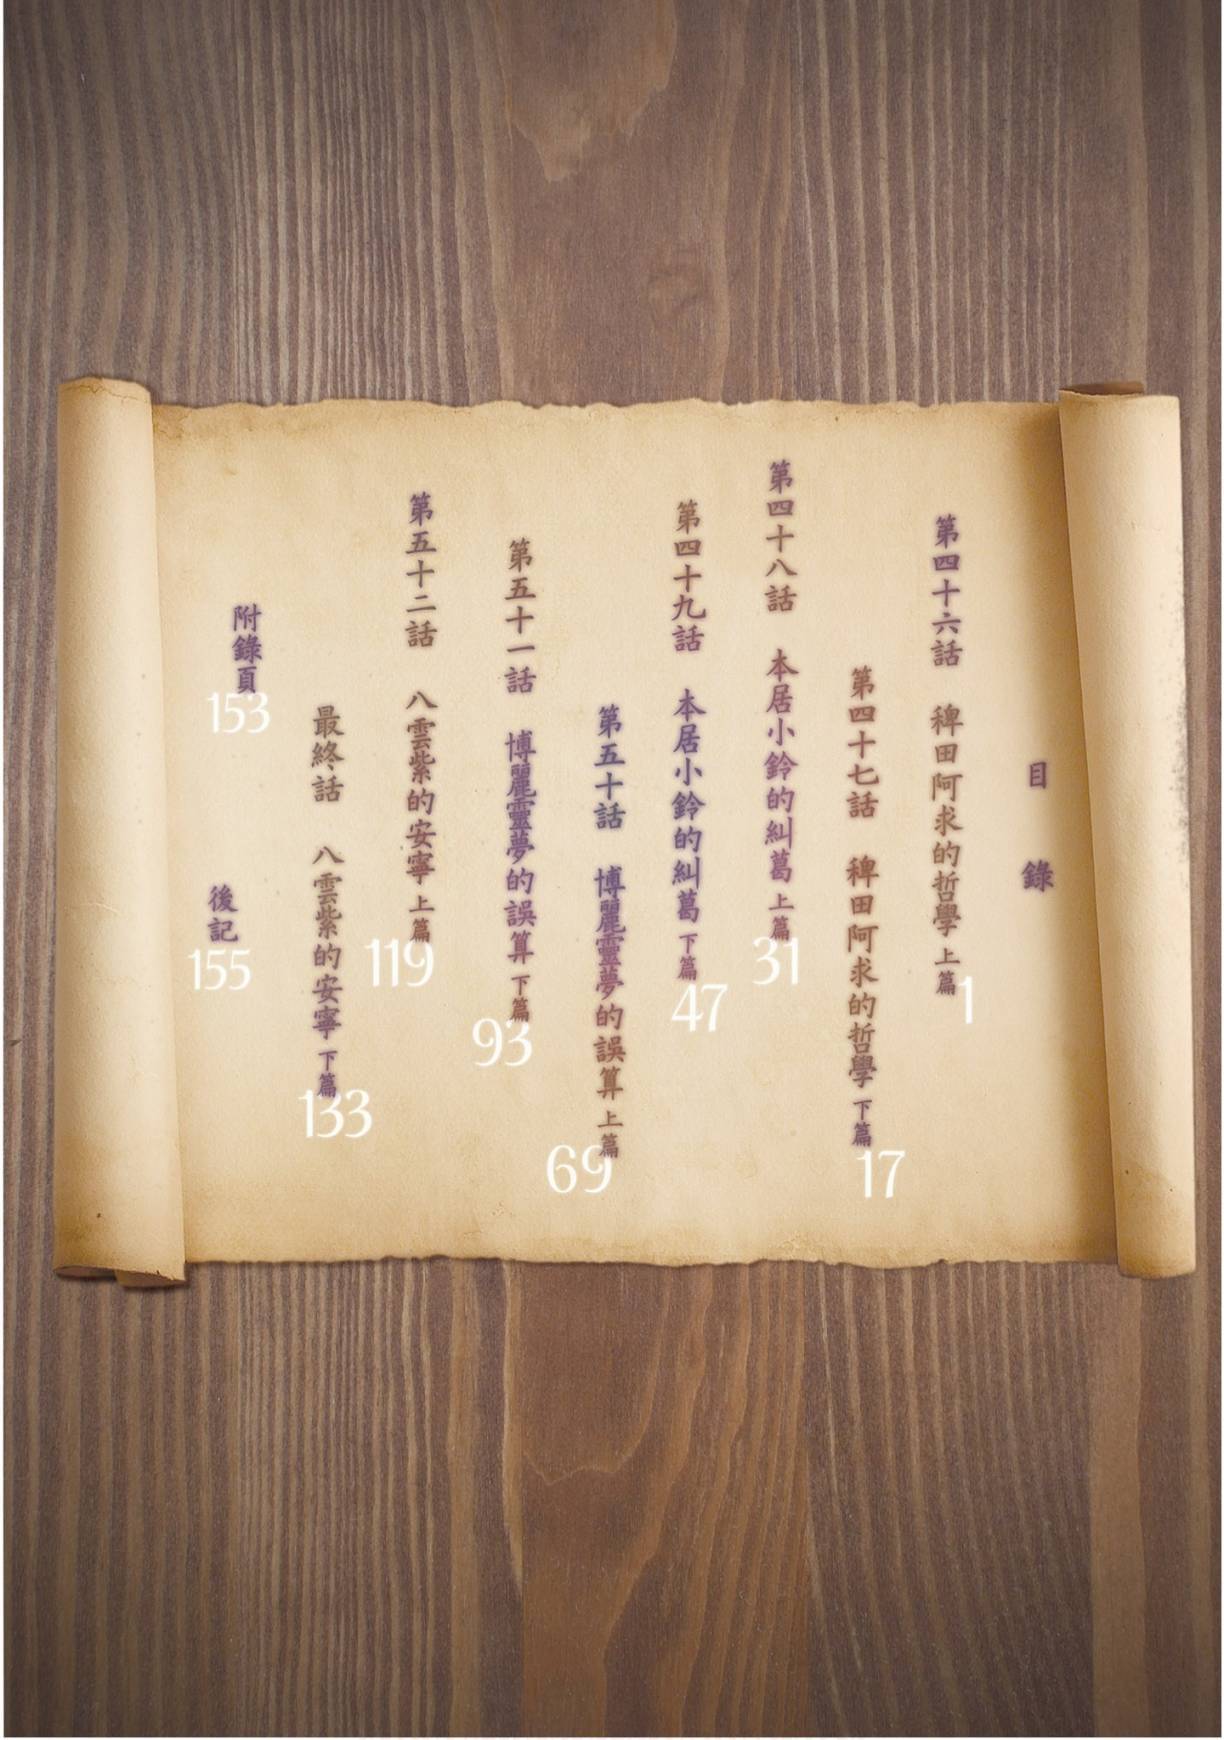 目錄
第四十六話 稗田阿求的哲學 上篇 1
第四十七話 稗田阿求的哲學 下篇 17
第四十八話 本居小鈴的糾葛 上篇 31
第四十九話 本居小鈴的糾葛 下篇 47
第五十話 博麗靈夢的誤算 上篇 69
第五十一話 博麗靈夢的誤算 下篇 93
第五十二話 八雲紫的安寧 上篇 119
最終話 八雲紫的安寧 下篇 133
附錄頁 153
後記 155